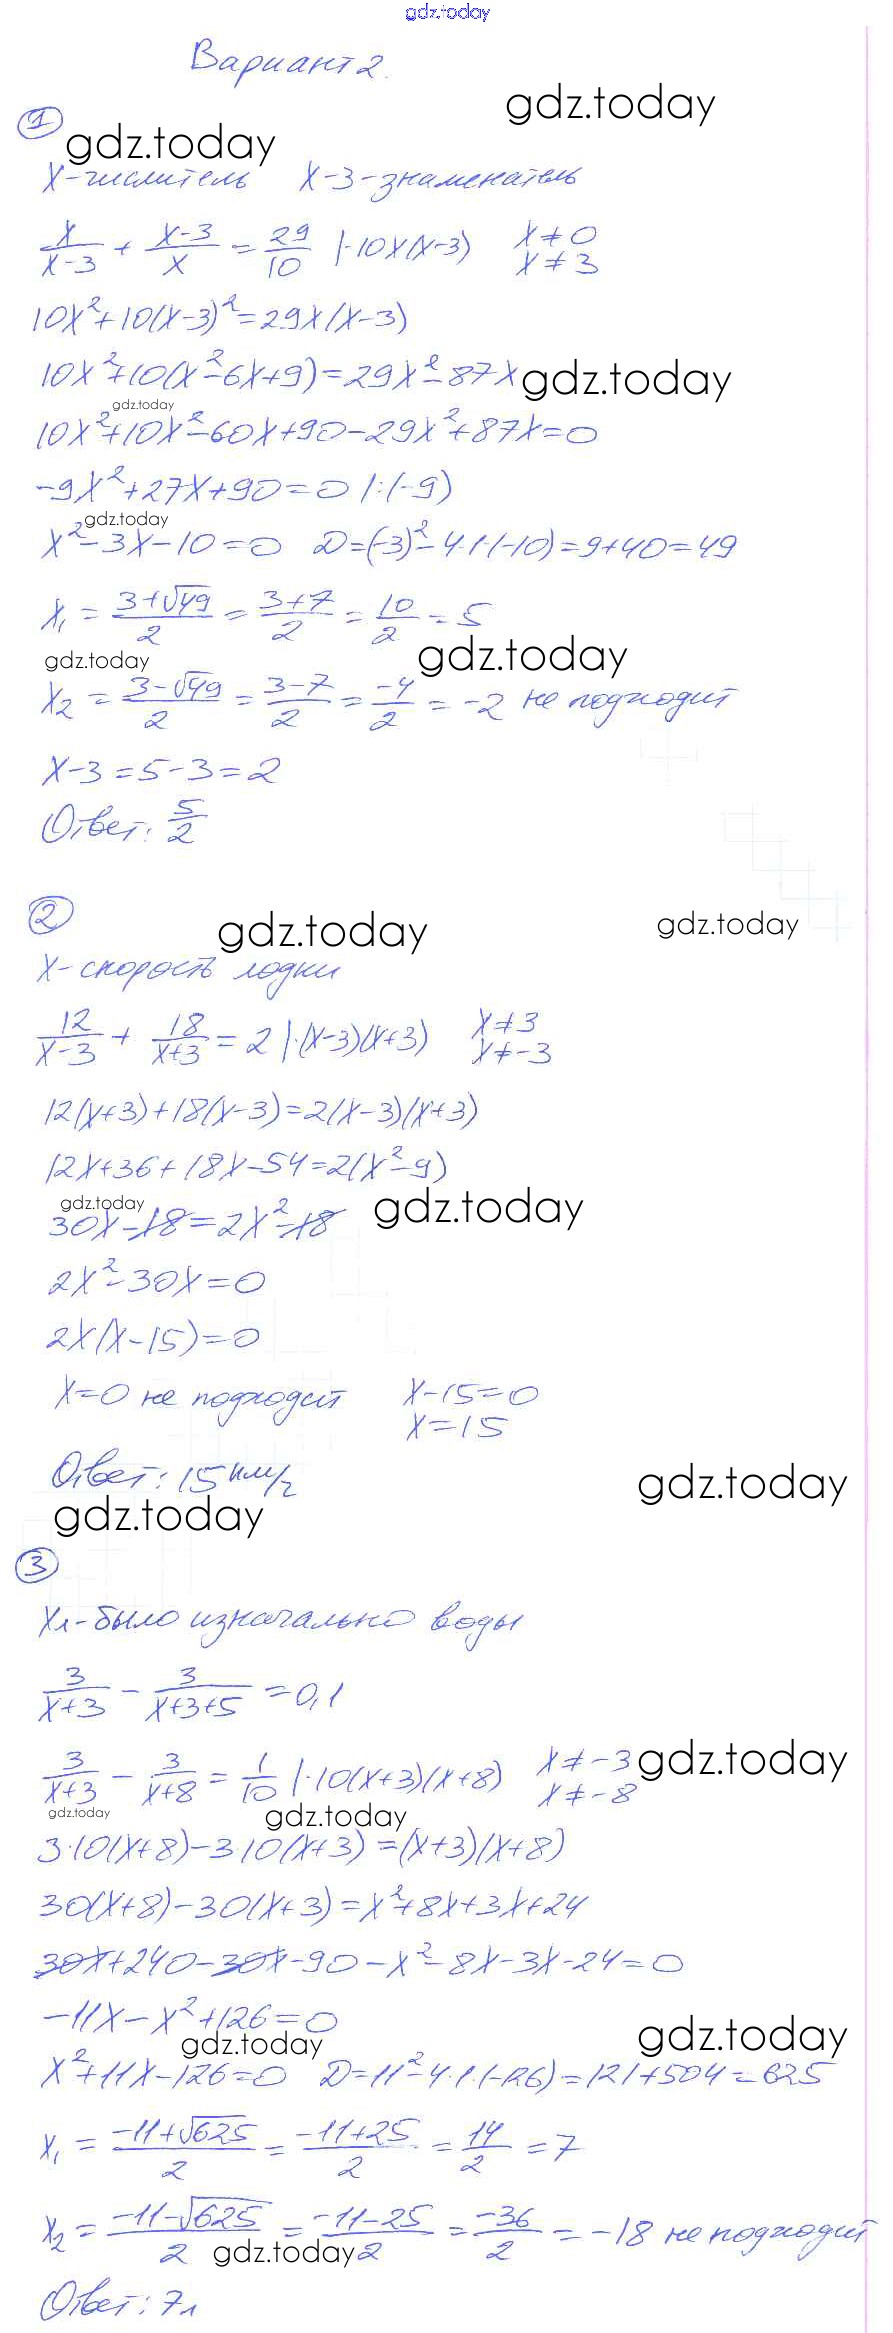 gdz.today
Вариант 2.
gdz.today
1
gdz.today
x-числитель x-3-знаменатель
x/(x-3) + (x-3)/x = 29/10 |·10x(x-3) x≠0
x≠3
10x²+10(x-3)²=29x(x-3)
10x²+10(x²-6x+9)=29x²-87x
gdz.today
gdz.today
10x²+10x²-60x+90-29x²+87x=0
-9x²+27x+90=0 |:(-9)
gdz.today
x²-3x-10=0 D=(-3)²-4·1·(-10)=9+40=49
x₁ = (3+√49)/2 = (3+7)/2 = 10/2 = 5
gdz.today
gdz.today
x₂ = (3-√49)/2 = (3-7)/2 = -4/2 = -2 не подходит
x-3=5-3=2
Ответ: 5/2
2
gdz.today
gdz.today
x-скорость лодки
12/(x-3) + 18/(x+3) = 2 |·(x-3)(x+3) x≠3
x≠-3
12(x+3)+18(x-3)=2(x-3)(x+3)
12x+36+18x-54=2(x²-9)
gdz.today
gdz.today
30x-18=2x²-18
2x²-30x=0
2x(x-15)=0
x=0 не подходит x-15=0
x=15
Ответ: 15 км/ч
gdz.today
gdz.today
3
xл-было изначально воды
3/(x+3) - 3/(x+3+5) = 0,1
3/(x+3) - 3/(x+8) = 1/10 |·10(x+3)(x+8) x≠-3
x≠-8
gdz.today
gdz.today
gdz.today
3·10(x+8)-3·10(x+3)=(x+3)(x+8)
30(x+8)-30(x+3)=x²+8x+3x+24
30x+240-30x-90-x²-8x-3x-24=0
-11x-x²+126=0
gdz.today
gdz.today
x²+11x-126=0 D=11²-4·1·(-126)=121+504=625
x₁ = (-11+√625)/2 = (-11+25)/2 = 14/2 = 7
x₂ = (-11-√625)/2 = (-11-25)/2 = -36/2 = -18 не подходит
gdz.today
Ответ: 7л